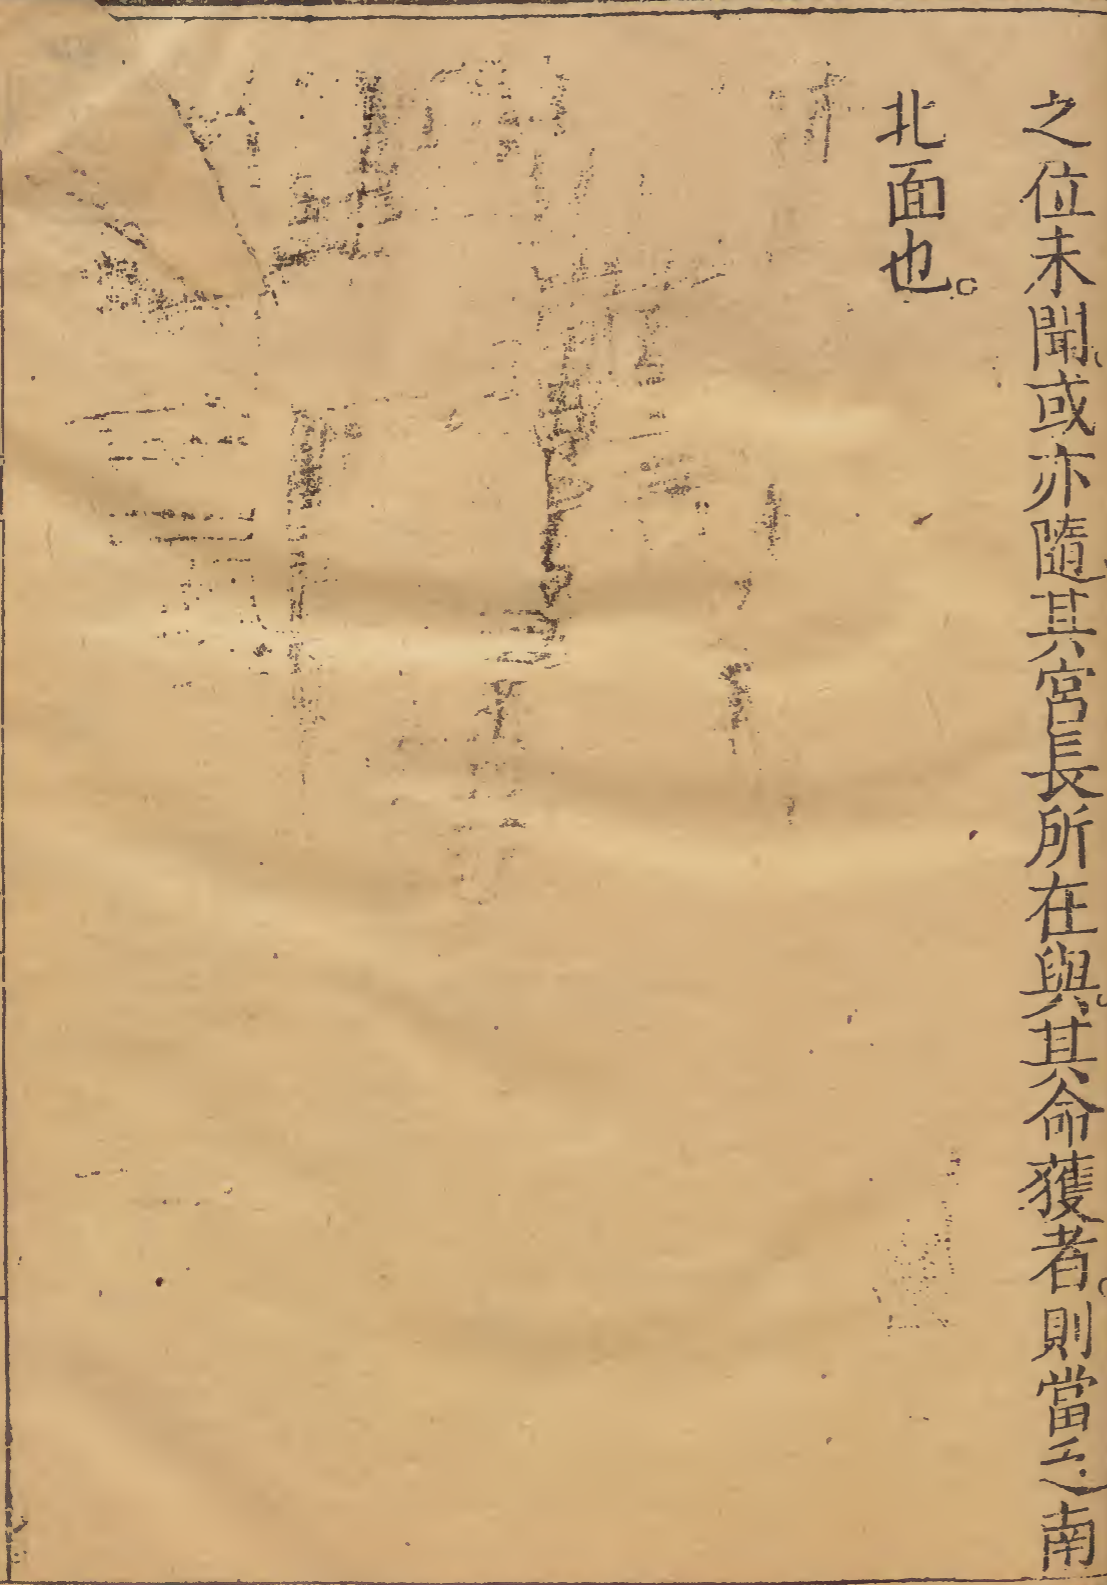 之位未聞或亦隨其宮長所在與其命獲者則當乏南
北面也